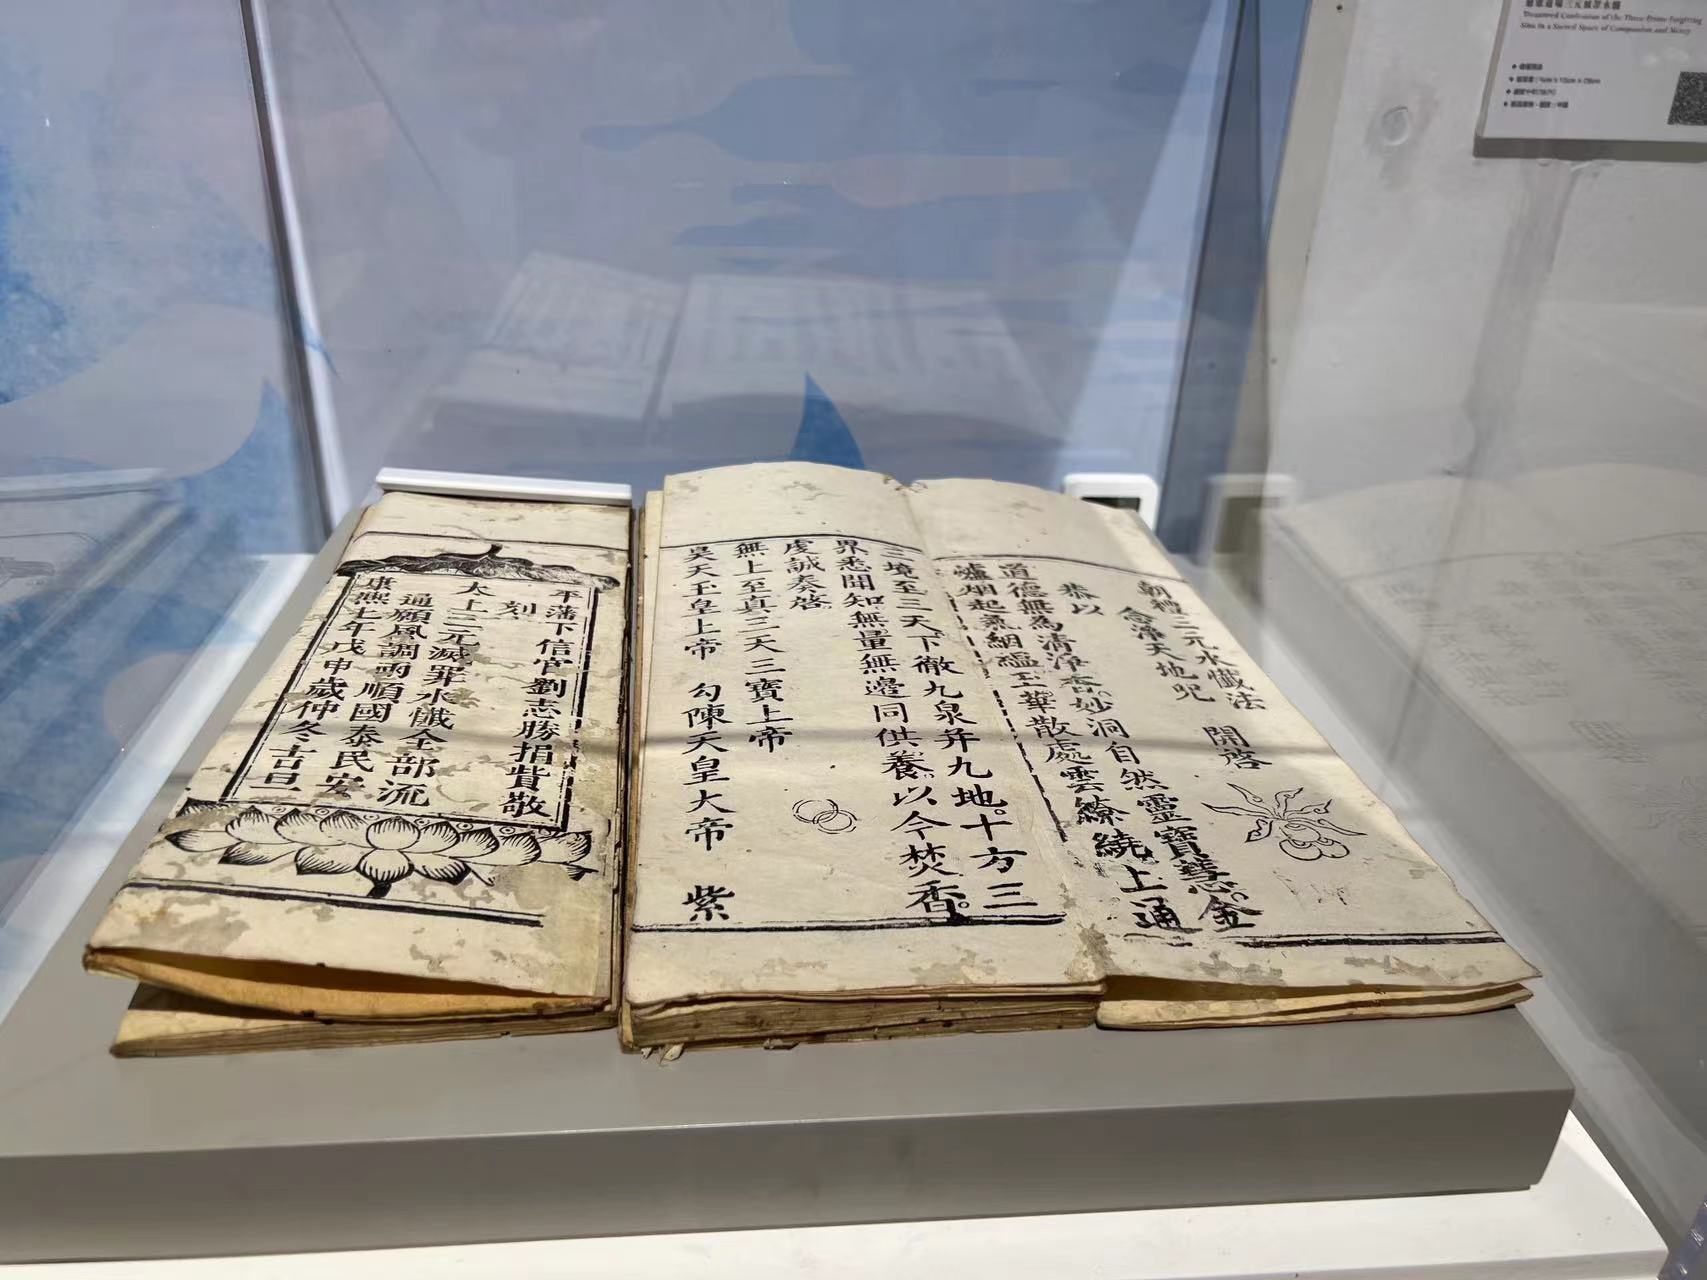 朝禮三元水懺法　開啓
念淨天地呪
恭以
道德無為清淨香。妙洞自然靈寶慧。金
爐烟起氣絪縕玉華散處雲繚繞上通
三境至三天下徹九泉并九地。十方三
界悉聞知無量無邊同供養。以今焚香。
虔誠奏啓
無上至真三天三寶上帝
昊天玉皇上帝　勾陳天皇大帝　紫
平藩下信官劉志勝捐貲敬
刻
太上三元滅罪水懺全部流
通願風調雨順國泰民安
康熙七年戊申歲仲冬吉旦
Treasured Confession of the Three Prime Forgiving
Sins in a Sacred Space of Compassion and Mercy